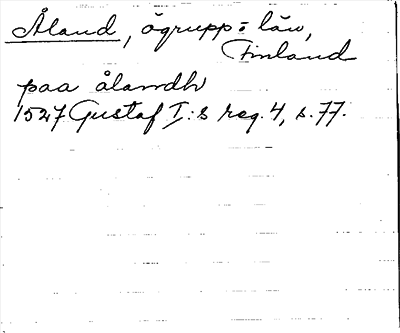 Åland, ögrupp = län,
Finland
paa ålamdh
1527 Gustaf I:s reg. 4, s. 77.